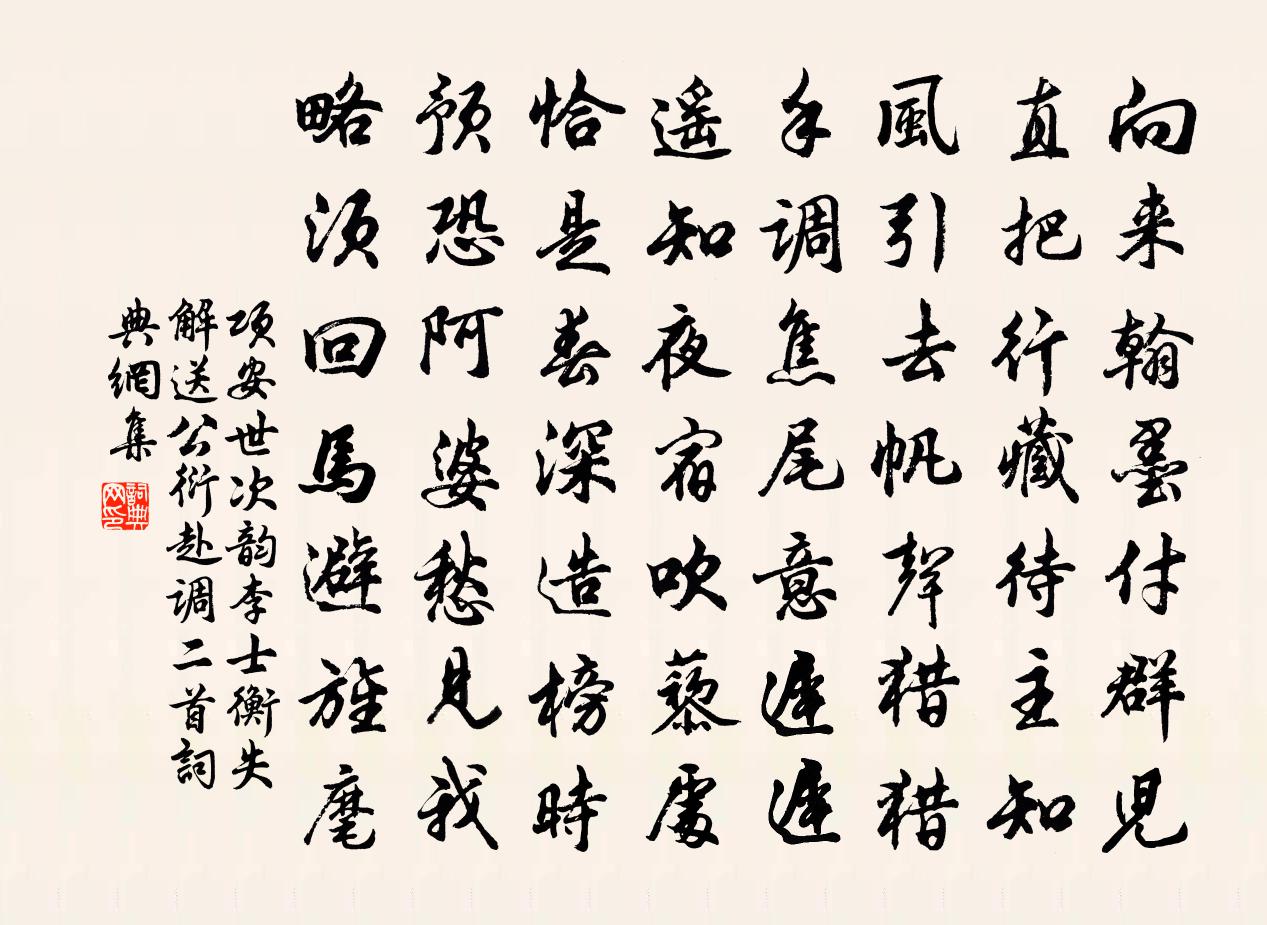 向来翰墨付群児
直把行藏待主知
風引去帆聲猎猎
手调焦尾意遲遲
遥知夜宿吹藜處
恰是春深造榜時
预恐阿婆愁見我
略须回馬避旌麾
项安世次韵李士衡失
解送公衍赴调二首詞
典網集
詞典网印